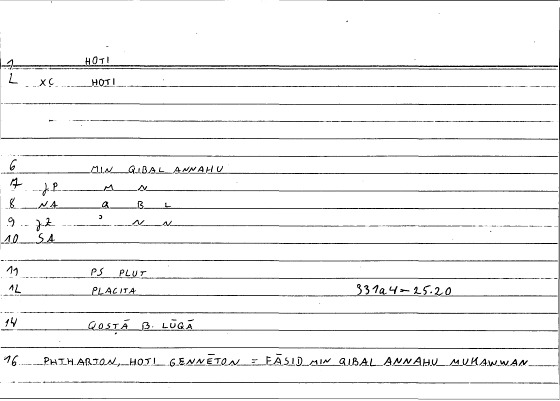 1 HOTI
2 XC HOTI
6 MIN QIBAL ANNAHU
7 JP M N
8 NA Q B L
9 JZ ʾ N N
10 SA
11 PS PLUT
12 PLACITA 331a4 = 25.20
14 QOSṬĀ B. LŪQĀ
16 PHTHARTON, HOTI GENNĒTON = FĀSID MIN QIBAL ANNAHU MUKAWWAN